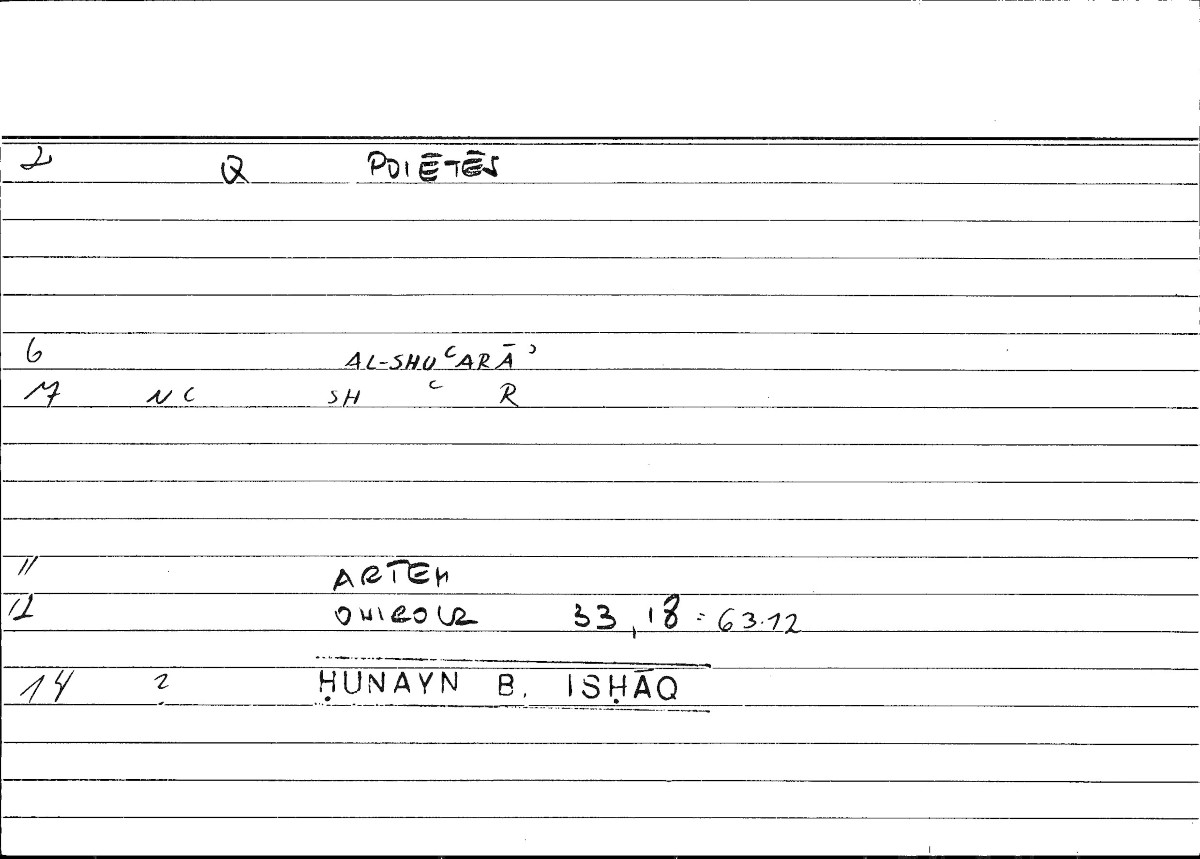 2 Q POIĒTĒS
6 AL-SHUʿARĀʾ
7 NC SH ʿ R
11 ARTEM
12 ONIROCR 33,18 = 63.12
14 ? ḤUNAYN B. ISḤĀQ